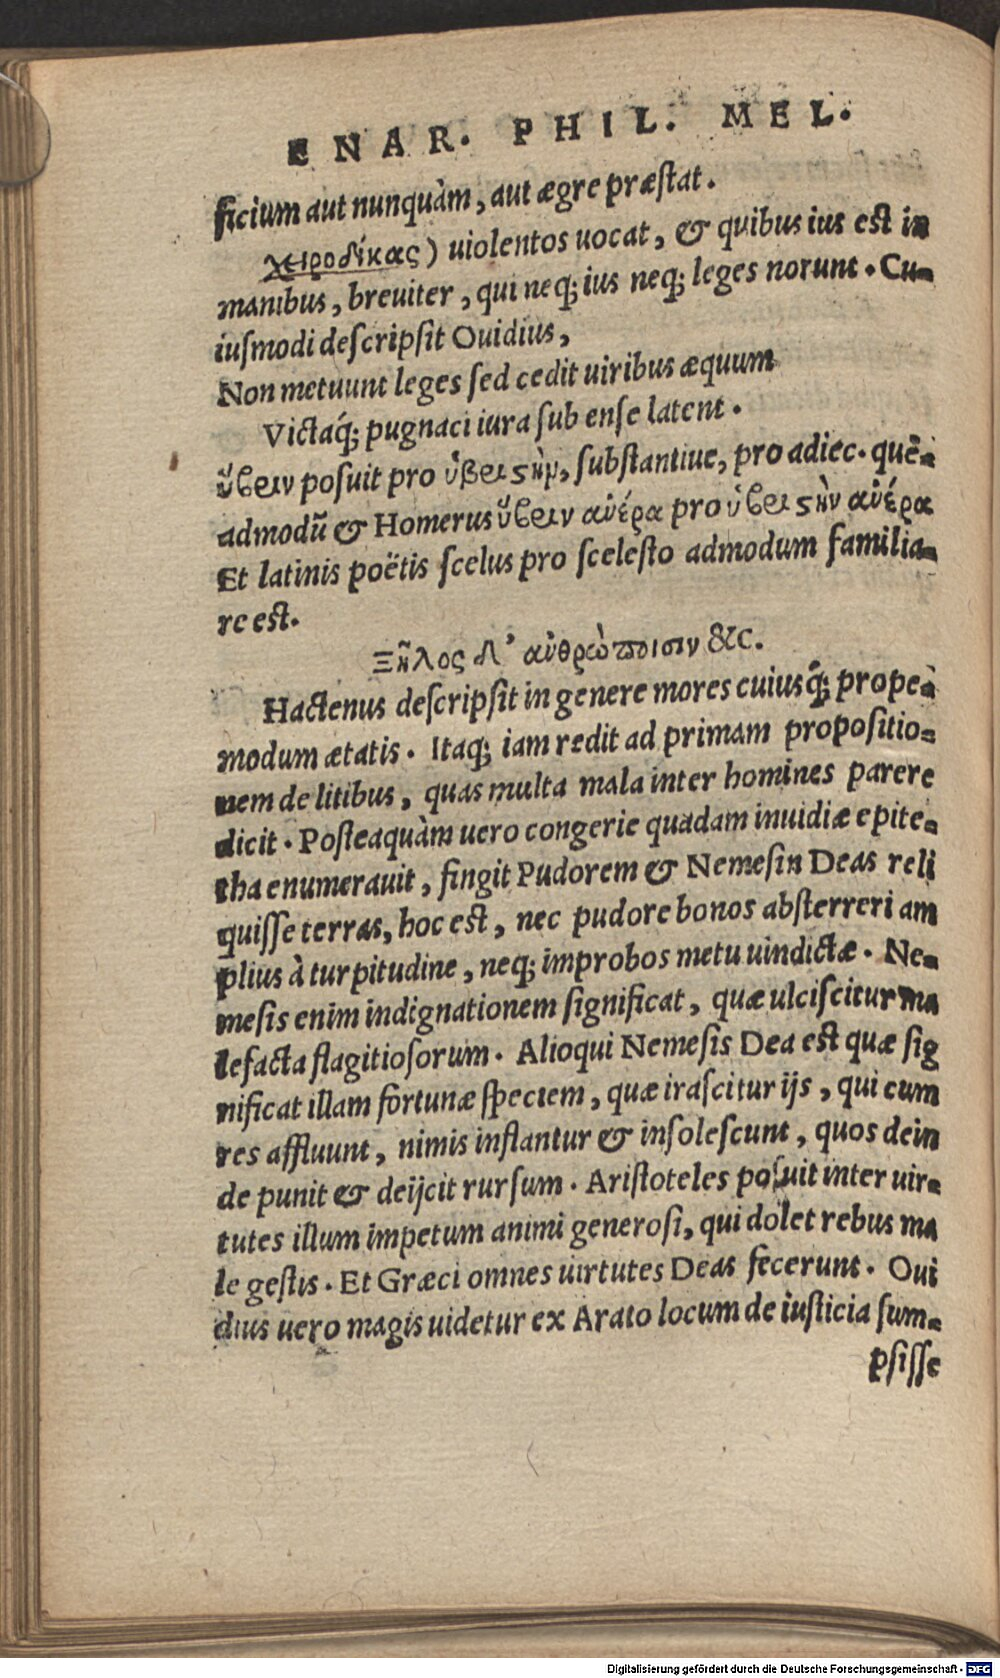 ENAR. PHIL. MEL.
ficium aut nunquàm, aut ægre præstat.
χειροδίκας) uiolentos uocat, & quibus ius est in
manibus, breuiter, qui neq; ius neq; leges norunt. Cu-
iusmodi descripsit Ouidius,
Non metuunt leges sed cedit uiribus æquum
Victaq́; pugnaci iura sub ense latent.
ὕβριν posuit pro ὑβριςὴμ, substantiue, pro adiec. quē-
admodū & Homerus ὕβριν ἀνέρα pro ὑβριςὴν ἀνέρα
Et latinis poëtis scelus pro scelesto admodum familia-
re est.
Ξῆλος δ' ἀνθρώποισιν &c.
Hactenus descripsit in genere mores cuiusq́; prope-
modum ætatis. Itaq; iam redit ad primam propositio-
nem de litibus, quas multa mala inter homines parere
dicit. Posteaquàm uero congerie quadam inuidiæ epite-
tha enumerauit, fingit Pudorem & Nemesin Deas reli
quisse terras, hoc est, nec pudore bonos absterreri am
plius à turpitudine, neq; improbos metu uindictæ. Ne-
mesis enim indignationem significat, quæ ulciscitur ma
lefacta flagitiosorum. Alioqui Nemesis Dea est quæ sig
nificat illam fortunæ speciem, quæ irascitur ijs, qui cum
res affluunt, nimis inflantur & insolescunt, quos dein
de punit & deijcit rursum. Aristoteles posuit inter uir-
tutes illum impetum animi generosi, qui dolet rebus ma
le gestis. Et Græci omnes uirtutes Deas fecerunt. Oui
dius uero magis uidetur ex Arato locum de iusticia sum-
psisse
Digitalisierung gefördert durch die Deutsche Forschungsgemeinschaft - DFG